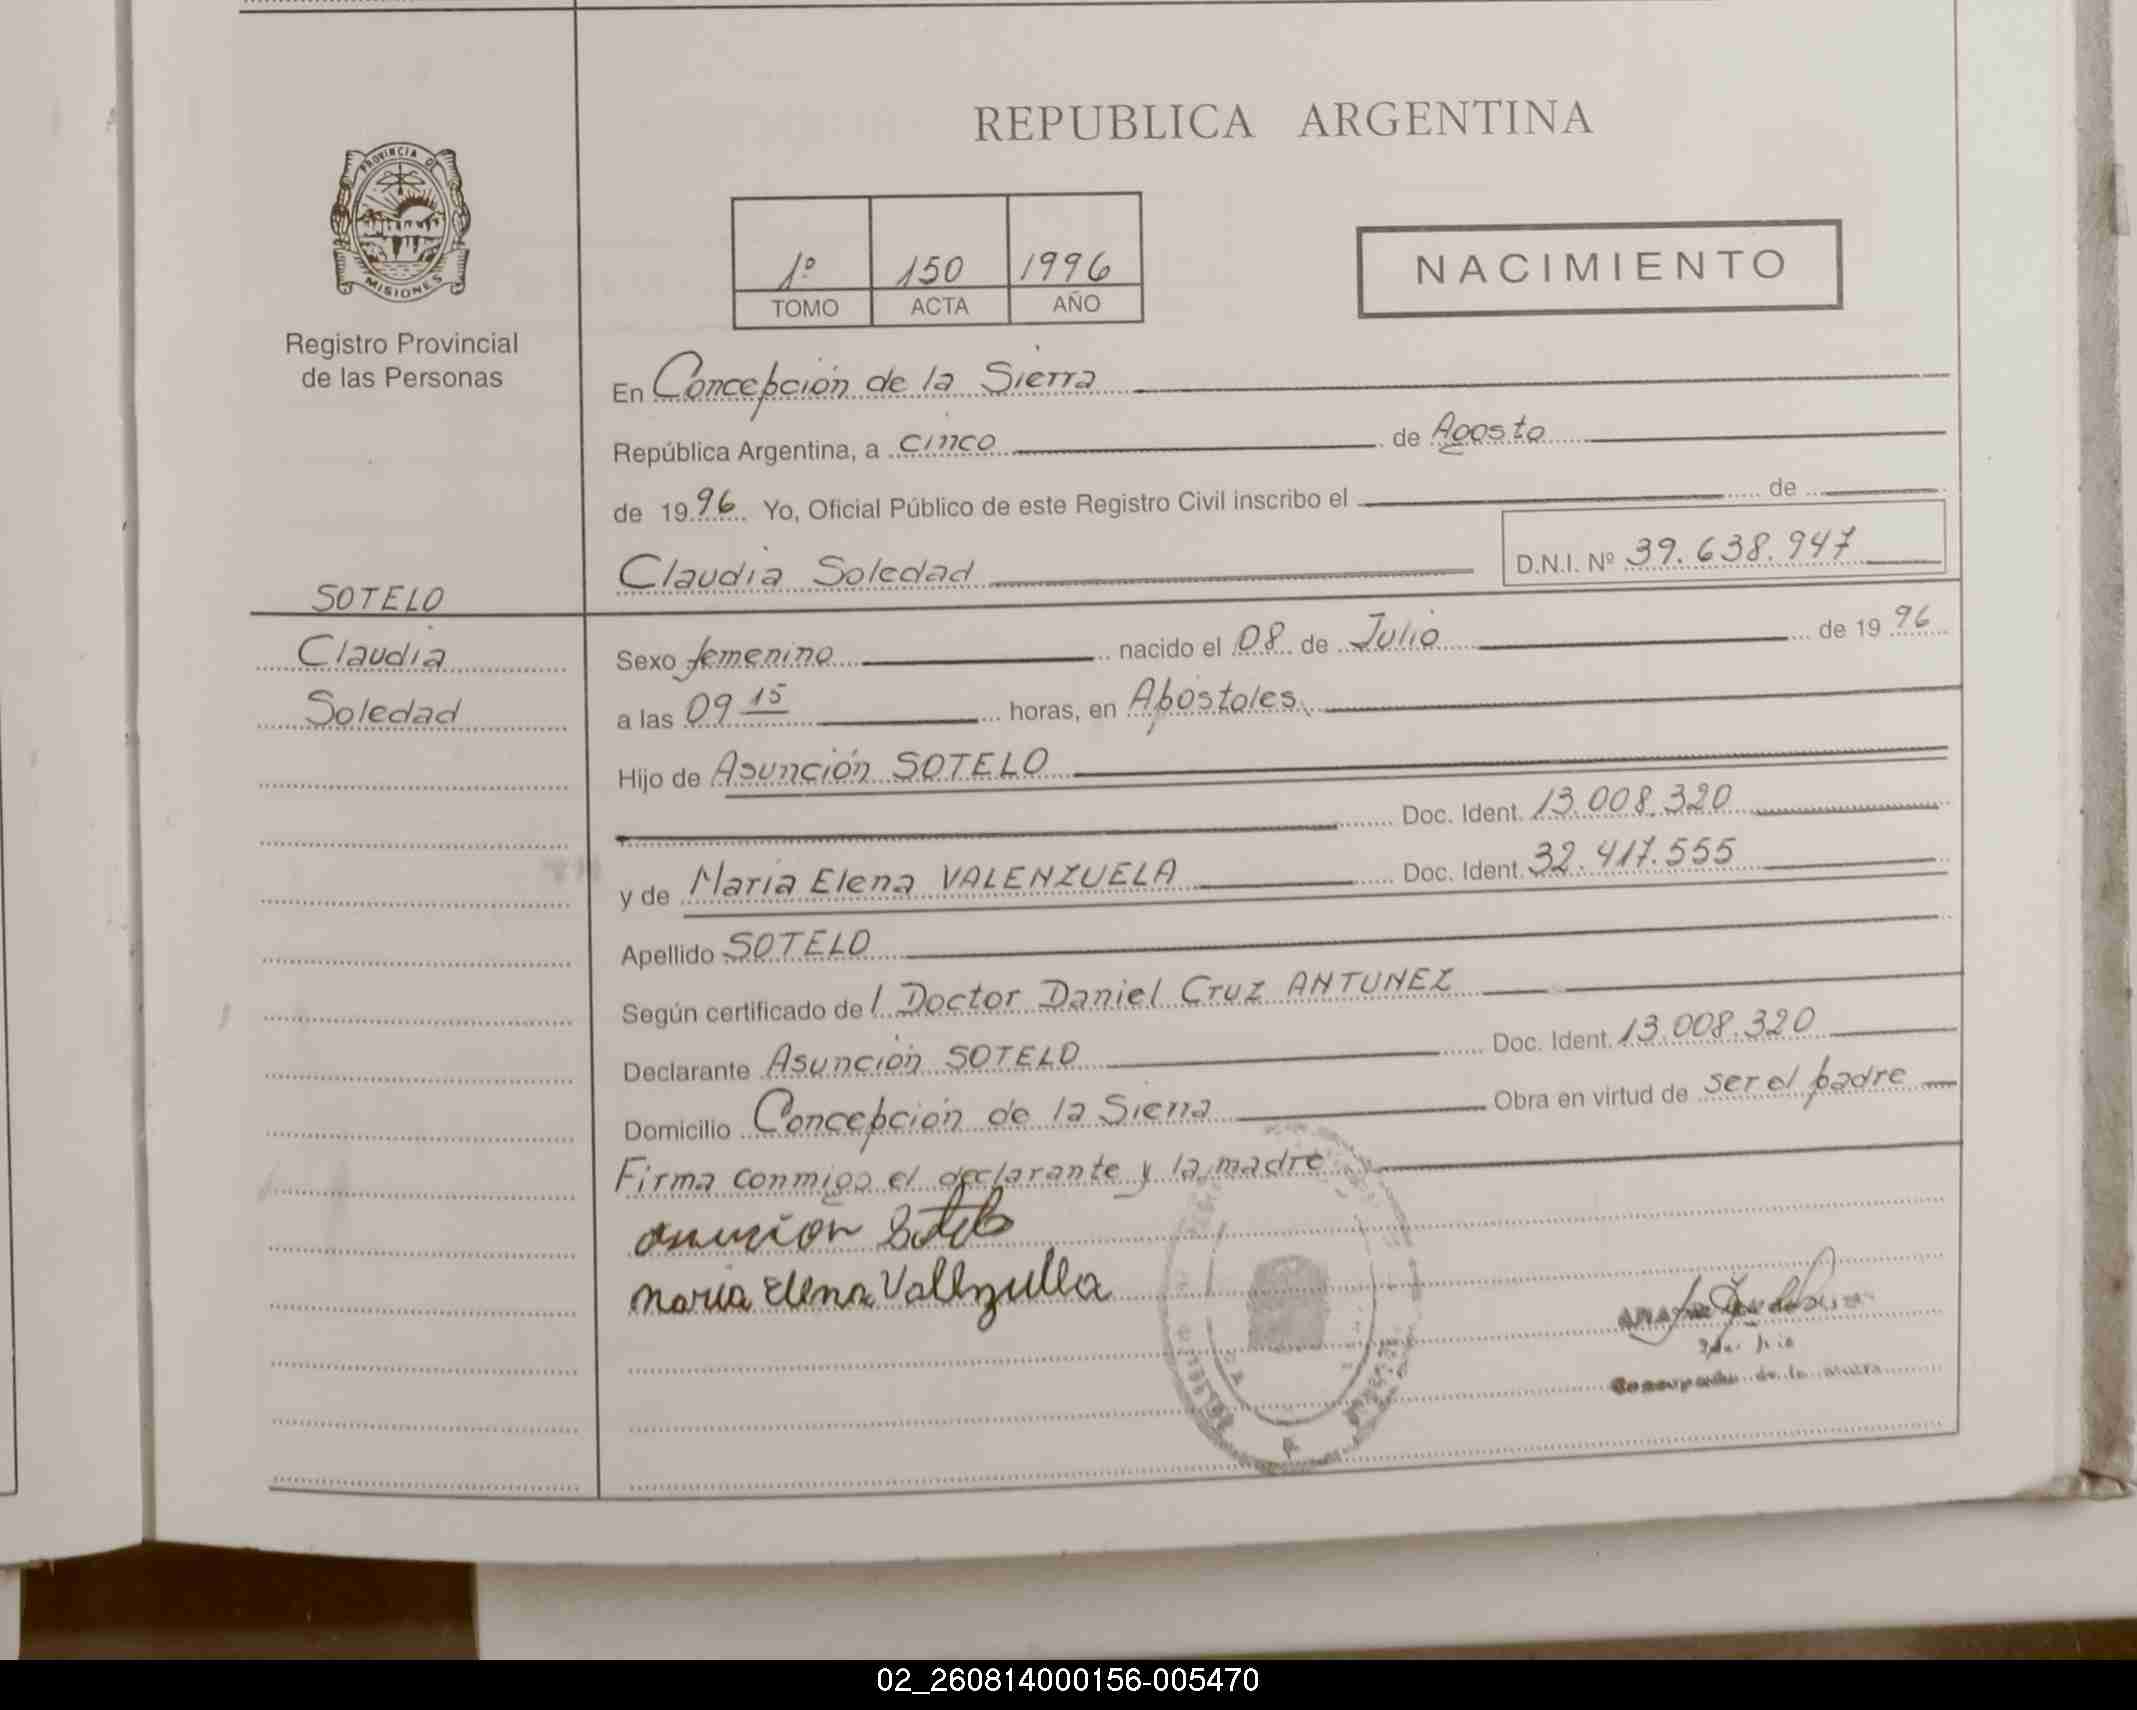 REPUBLICA ARGENTINA
PROVINCIA DE
MISIONES
Registro Provincial
de las Personas
1º 150 1996
TOMO ACTA AÑO
NACIMIENTO
En Concepción de la Sierra
República Argentina, a cinco de Agosto
de 1996 Yo, Oficial Público de este Registro Civil inscribo el de
Claudia Soledad D.N.I. Nº 39.638.947
SOTELO
Claudia
Soledad
Sexo femenino nacido el 08 de Julio de 1996
a las 09 15 horas, en Apóstoles
Hijo de Asunción SOTELO
Doc. Ident. 13.008.320
y de María Elena VALENZUELA Doc. Ident. 32.417.555
Apellido SOTELO
Según certificado de l Doctor Daniel Cruz ANTUNEZ
Declarante Asunción SOTELO Doc. Ident. 13.008.320
Domicilio Concepción de la Sierra Obra en virtud de ser el padre
Firma conmigo el declarante y la madre
asuncion Sotelo
maria Elena Valenzuella
de la
02_260814000156-005470